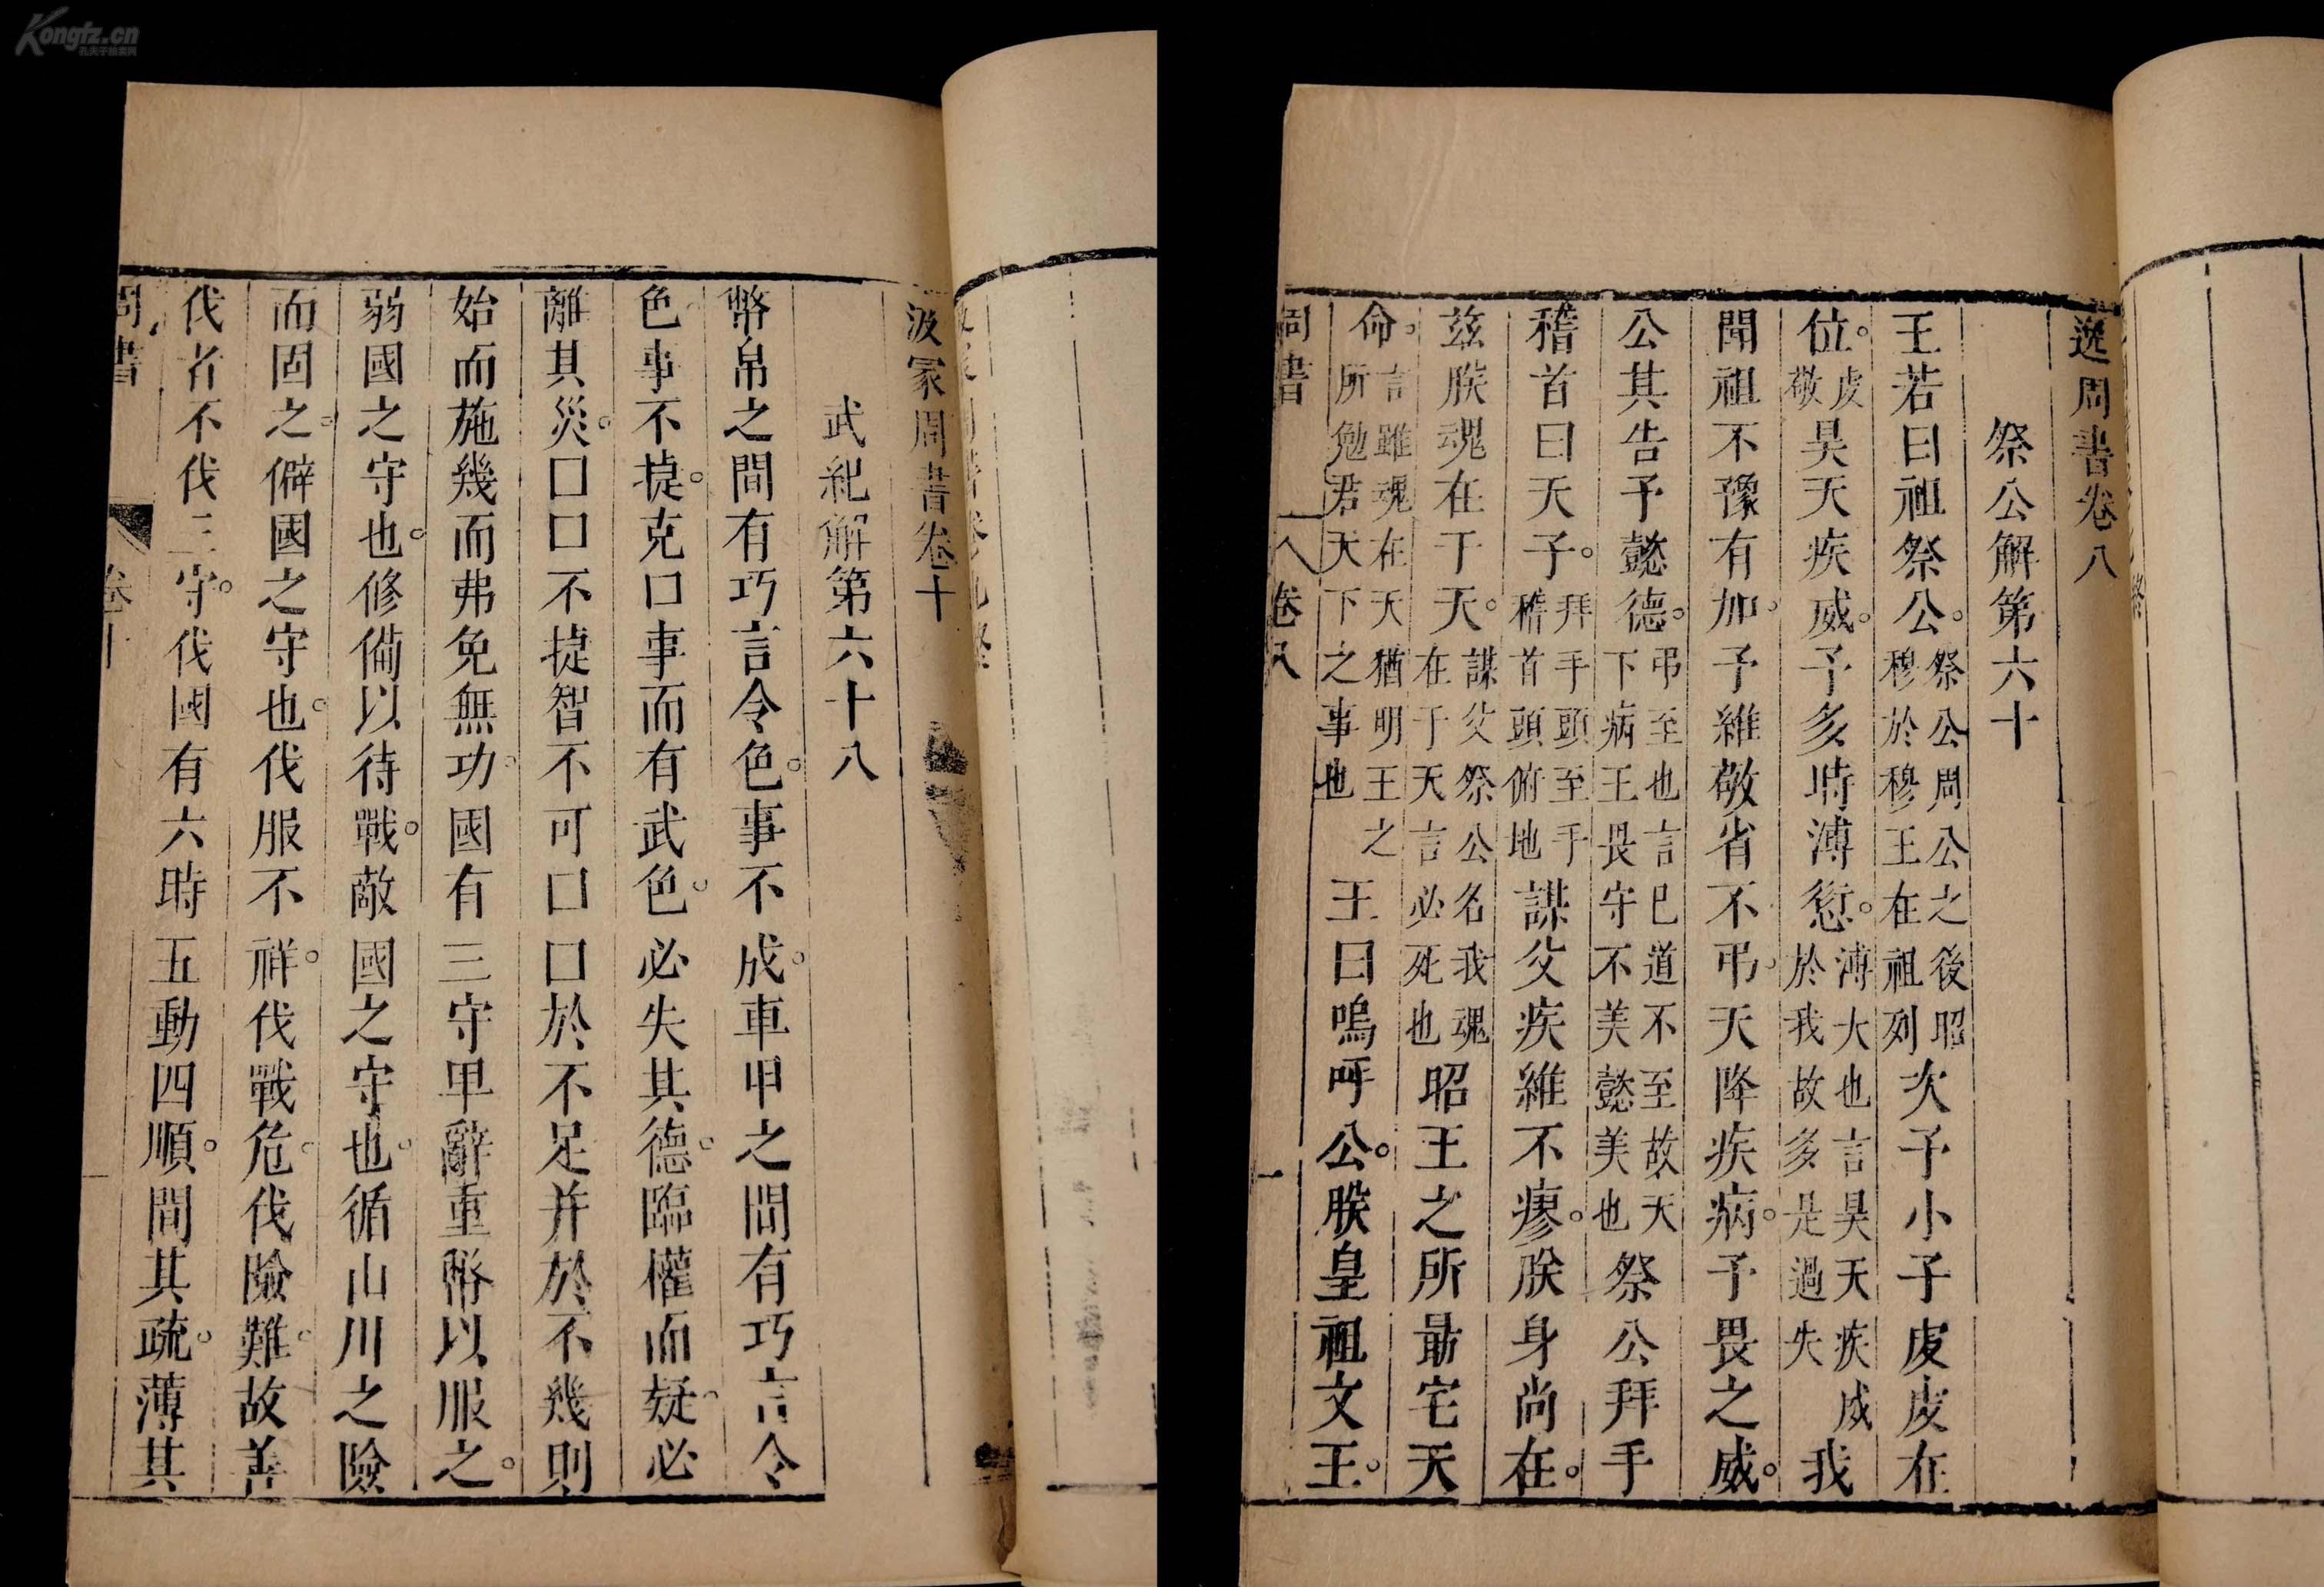 逸周書卷八
祭公解第六十
王若曰祖祭公。祭公周公之後昭穆於穆王在祖列次予小子虔虔在
位。虔敬昊天疾威。予多時溥愆。溥大也言昊天疾威於我故多是過失我
聞祖不豫有加。予維敬省不弔。天降疾病。予畏之威。
公其告予懿德。弔至也言已道不至故天下病王畏守不美懿美也祭公拜手
稽首曰天子。拜手頭至手稽首頭俯地謀父疾維不瘳。朕身尚在。
茲朕魂在于天。謀父祭公名我魂在于天言必死也昭王之所朂宅天
命。言雖魂在天猶明王之所勉君天下之事也王曰嗚呼公。朕皇祖文王。
周書 卷八 一
汲冢周書卷十
武紀解第六十八
幣帛之間有巧言令色。事不成。車甲之間有巧言令
色。事不捷。克口事而有武色。必失其德。臨權而疑。必
離其災。口口不捷智不可口口於不足并於不幾則
始而施幾而弗免無功。國有三守卑辭重幣以服之。
弱國之守也。修備以待戰。敵國之守也。循山川之險
而固之。僻國之守也。伐服不祥。伐戰危。伐險難。故善
伐者不伐三守。伐國有六時五動四順。間其疏。薄其
周書 卷十 一
Kongfz.cn
孔夫子拍卖网